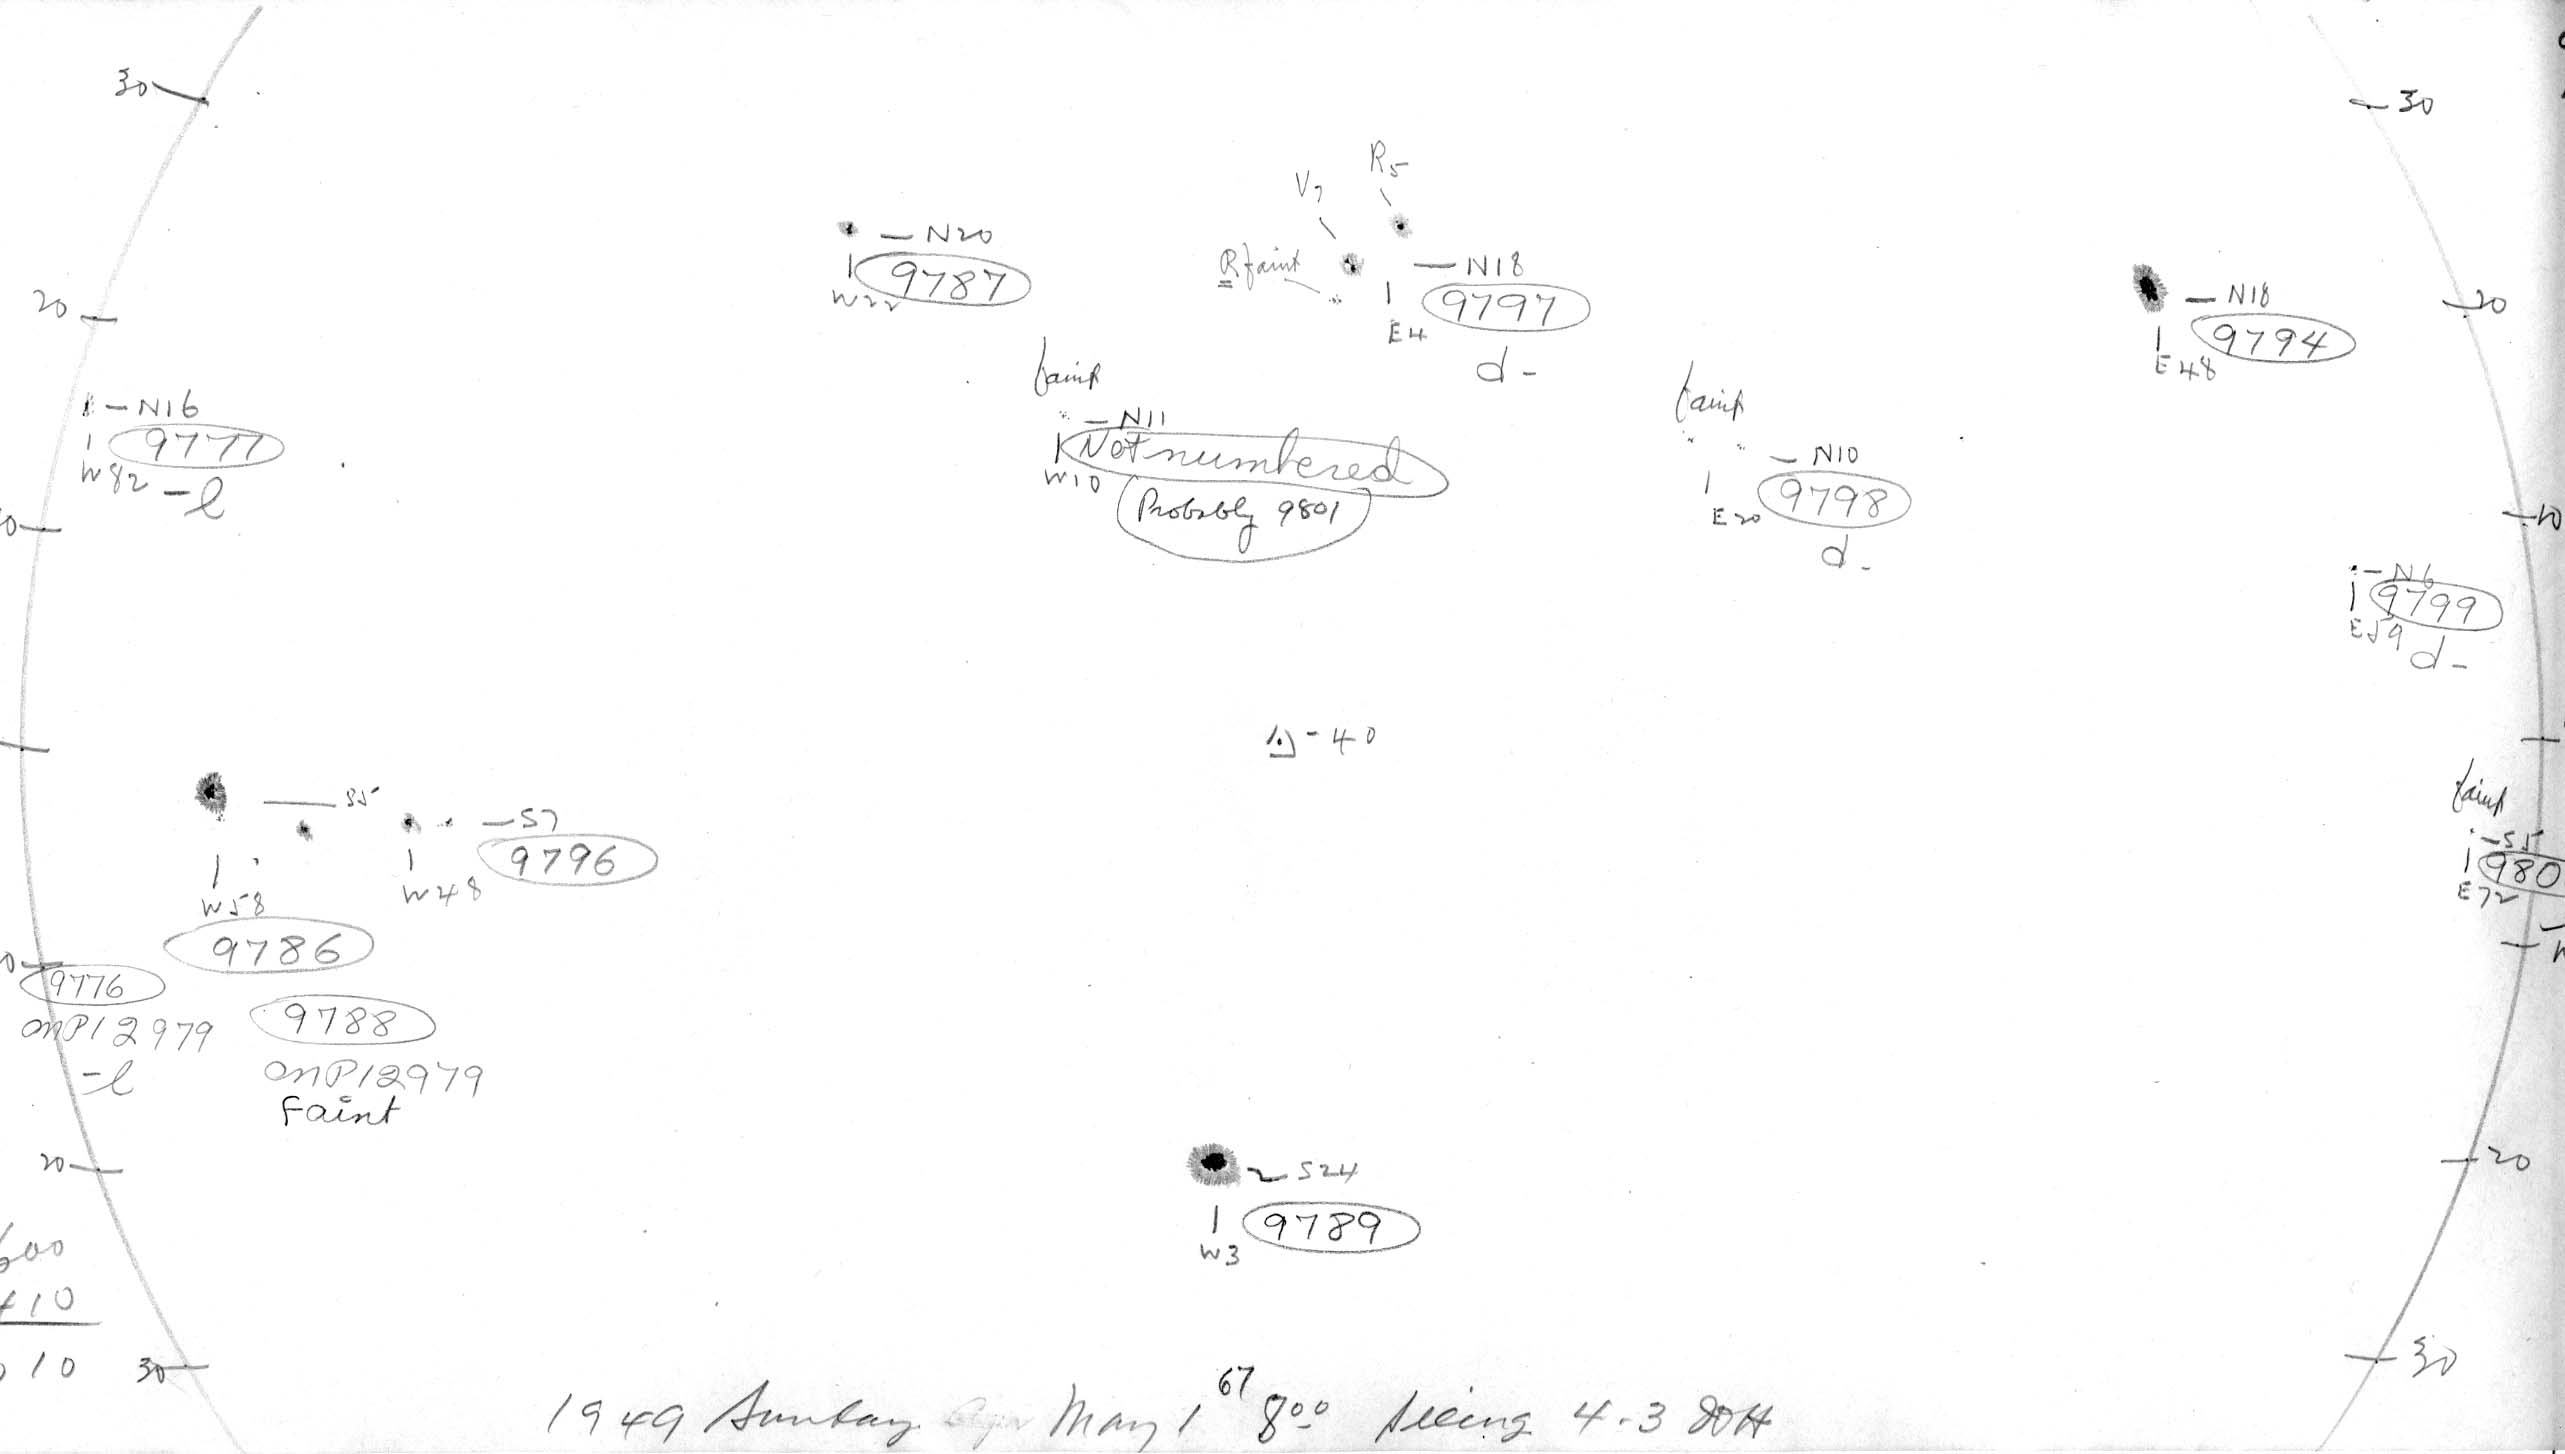 30
30
R5
V7
N20
9787
W22
R faint
N18
9797
E4
d-
N18
9794
E48
20
20
faint
N11
Not numbered
W10
Probably 9801
faint
N10
9798
E20
d-
N16
9777
W82
-l
10
N6
9799
E59
d-
-40
S5
S7
9796
W48
W58
9786
faint
S5
980
E72
9776
on P12979
-l
9788
on P12979
Faint
20
S24
9789
W3
20
600
410
10
30
30
1949 Sunday May 1 67 8:00 Seeing 4-3